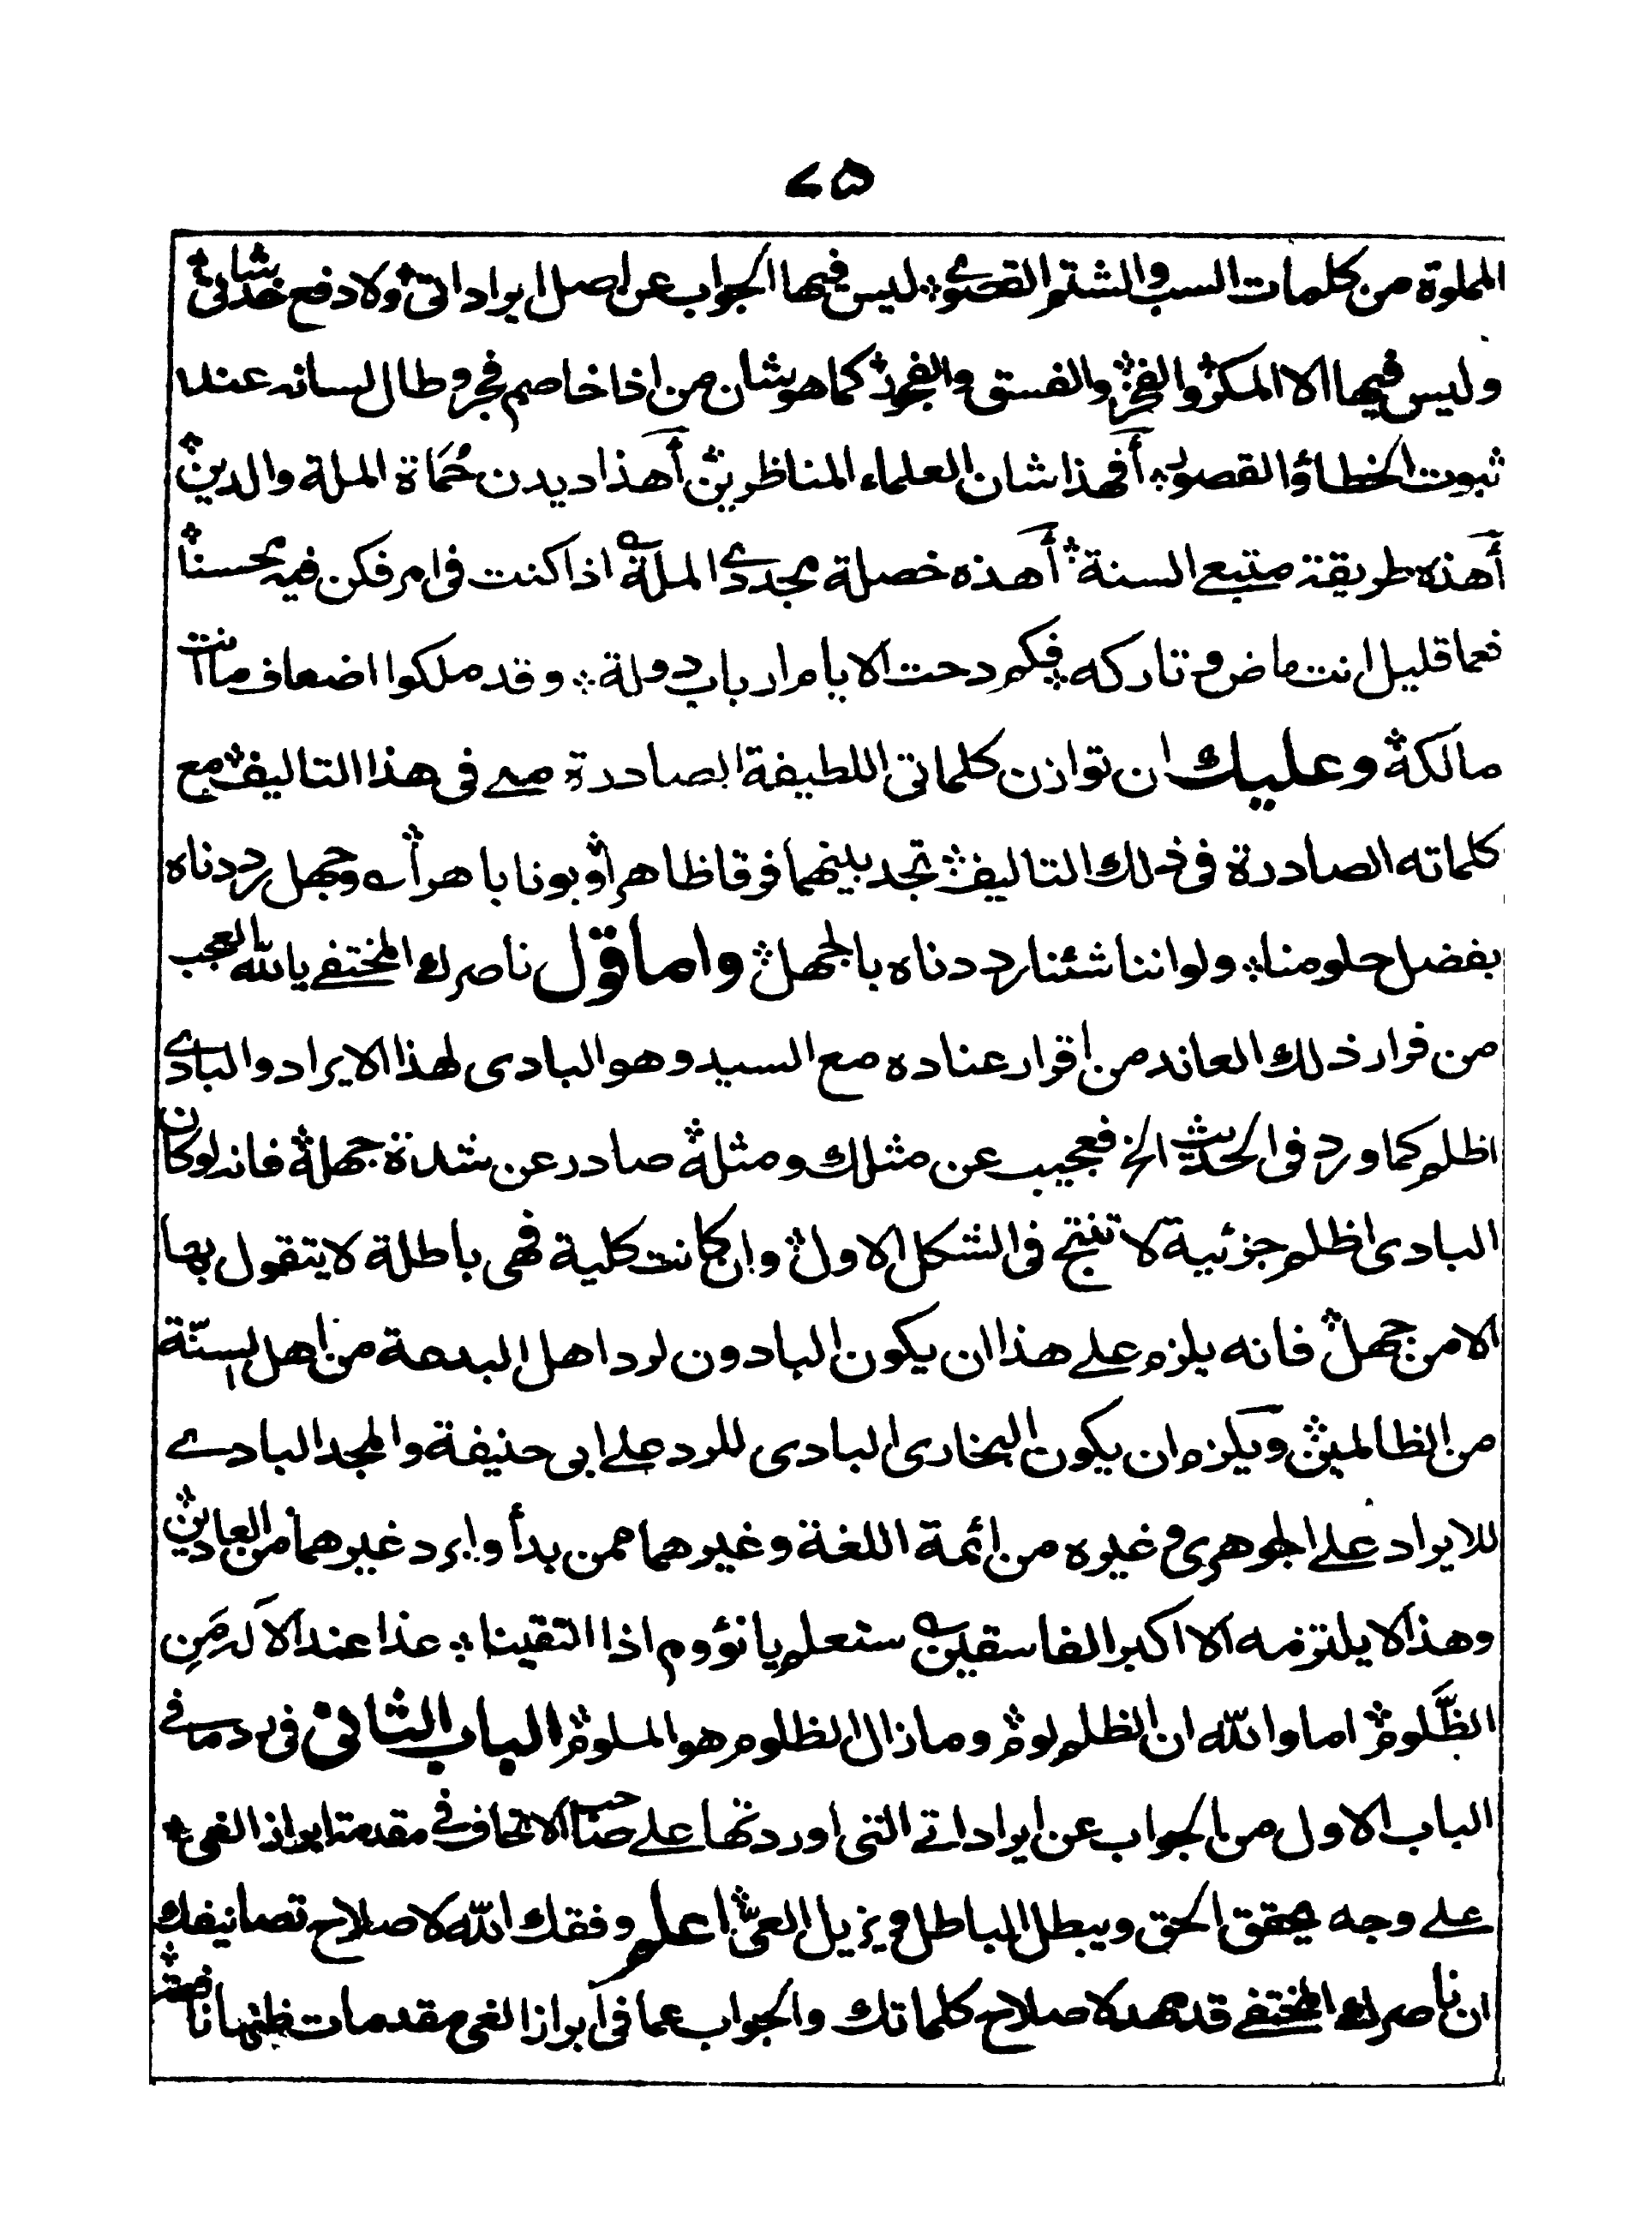 ٧٥
المملوة من كلمات السب والشتم القصوى ليس فيها الجواب عن اصل ايراداتى ولا دفع خدشاتى
وليس فيها الا المكر والفخر والفسق والفجور كما هو شان من اذا خاصم فجر وطال لسانه عند
ثبوت الخطاؤ القصور أفهذا شان العلماء المناظرين أهذا ديدن حُمَاة الملة والدين
أهذه طريقة متبع السنة أهذه خصلة مجددى الملة اذا كنت فى امر فكن فيه محسنا
فعما قليل انت ماض وتاركه فكم دحت الايام ارباب دولة وقد ملكوا اضعاف ما انت
مالكه وعليك ان توازن كلماتى اللطيفة الصادرة منى فى هذا التاليف مع
كلماته الصادرة فى ذلك التاليف تجد بينهما فرقا ظاهرا وبونا باهرا وجهل رددناه
بفضل حلومنا ولو اننا شئنا رددناه بالجهل واما قول ناصرك المختفى يالله العجب
من فرار ذلك العاند من اقرار عناده مع السيد وهو البادى لهذا الايراد والبادى
اظلم كما ورد فى الحديث الخ فعجيب عن مثلك ومثله صادر عن شدة جهله فانه لوكان
البادى اظلم جزئية لا تنتج فى الشكل الاول وان كانت كلية فهى باطلة لا يتقول بها
الا من جهل فانه يلزم على هذا ان يكون البادون لرد اهل البدعة من اهل السنّة
من الظالمين ويلزم ان يكون البخارى البادى للرد على ابى حنيفة والمجد البادى
للايراد على الجوهرى وغيره من ائمة اللغة وغيرهما ممن بدأ وايرد غيرهما من العادين
وهذا لا يلتزمه الا اكبر الفاسقين ستعلم يا نؤوم اذا التقينا غذا عند الآله مَنِ
الظَّلوم اما والله ان الظلم لوم وما زال الظلوم هو الملوم الباب الثانى فى رد ما فى
الباب الاول من الجواب عن ايراداتى التى اوردتها على صاحب الاتحاف فى مقدمة ابراز الغى
على وجه يحقق الحق ويبطل الباطل ويزيل العىّ اعلم وفقك الله لاصلاح تصانيفك
ان ناصرك المختفى قد مهد لاصلاح كلماتك والجواب عما فى ابراز الغى مقدمات ظنها